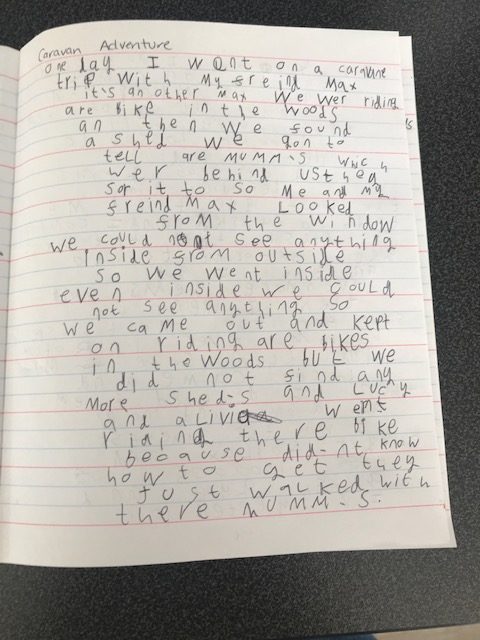 Caravan Adventure
one day I want on a caravane
trip with My freind Max
it's an other Max We Wer riding
are bike in the woods
an then We found
a shed We gon to
tell are MUMM-S which
wer behind us they
sor it to so Me and My
freind Max Looked
from the window
we could not see anything
inside from outside
so we went inside
even inside we could
not see anything so
we came out and kept
on riding are bikes
in the woods but we
did not find any
More shed-s and Lucy
and aLivia went
riding there bike
beoause did-nt know
how to get they
Just walked with
there MUMM-S.